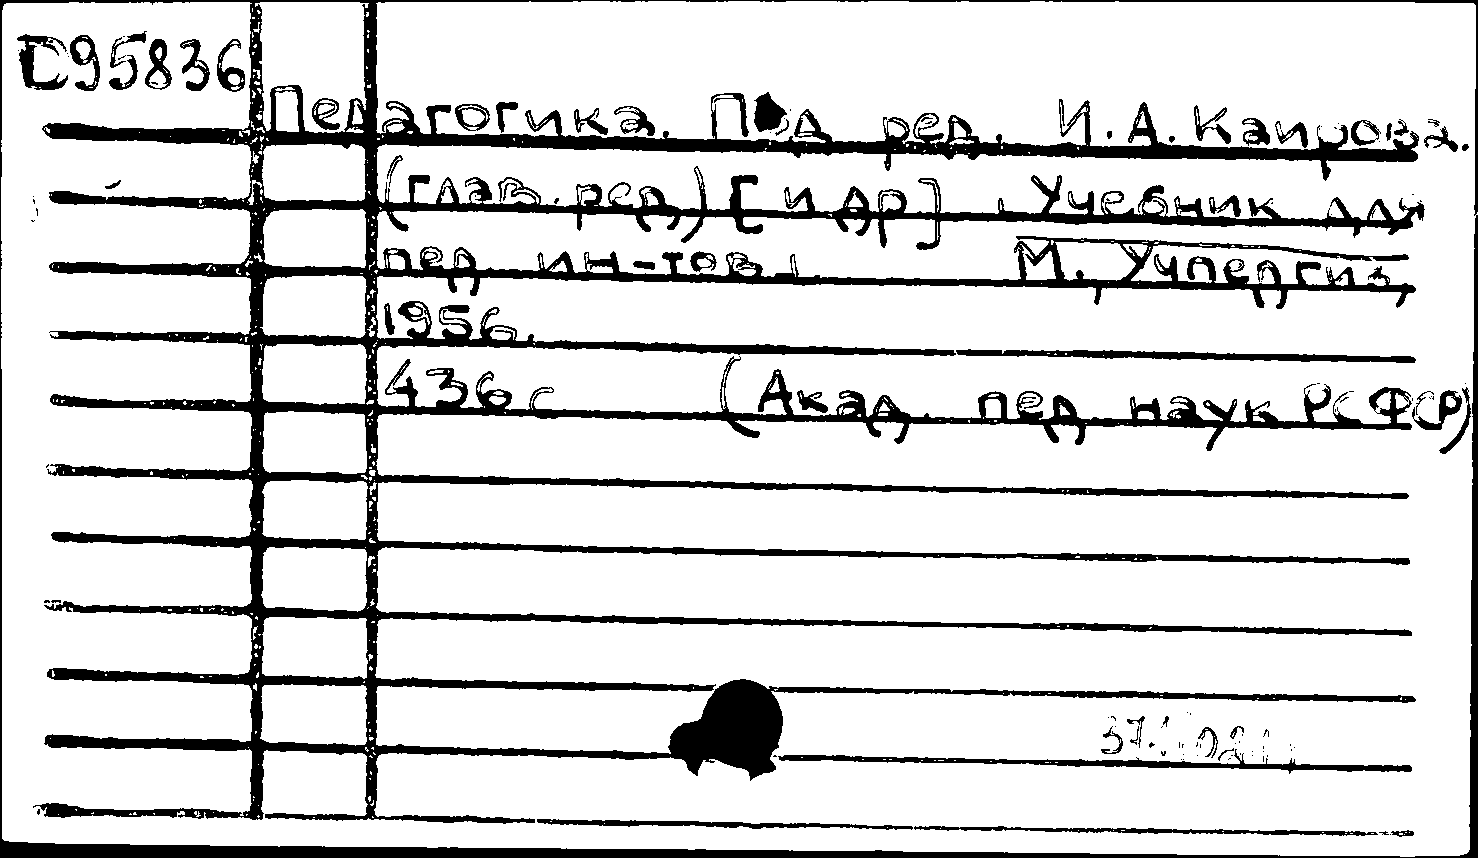 D95836
Педагогика. Под ред. И.А. Каирова.
(глав. ред.) [и др]. Учебник для
пед. ин-тов. М., Учпедгиз,
1956.
436 с (Акад. пед. наук РСФСР)